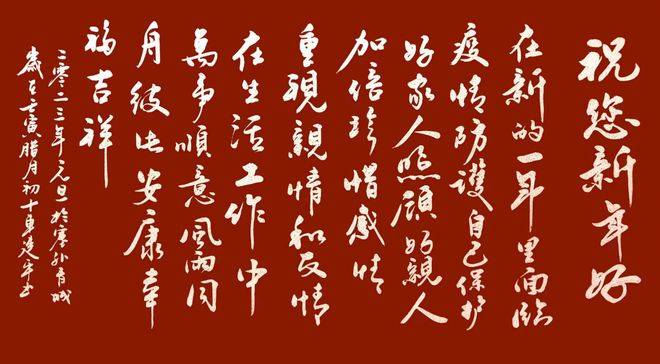 祝您新年好
在新的一年里面臨
疫情防護自己保护
好家人照顾好親人
加倍珍惜感情
重視親情和友情
在生活工作中
萬事順意風雨同
舟彼此安康幸
福吉祥
二零二三年元旦於塞外青城
歲在壬寅腊月初十